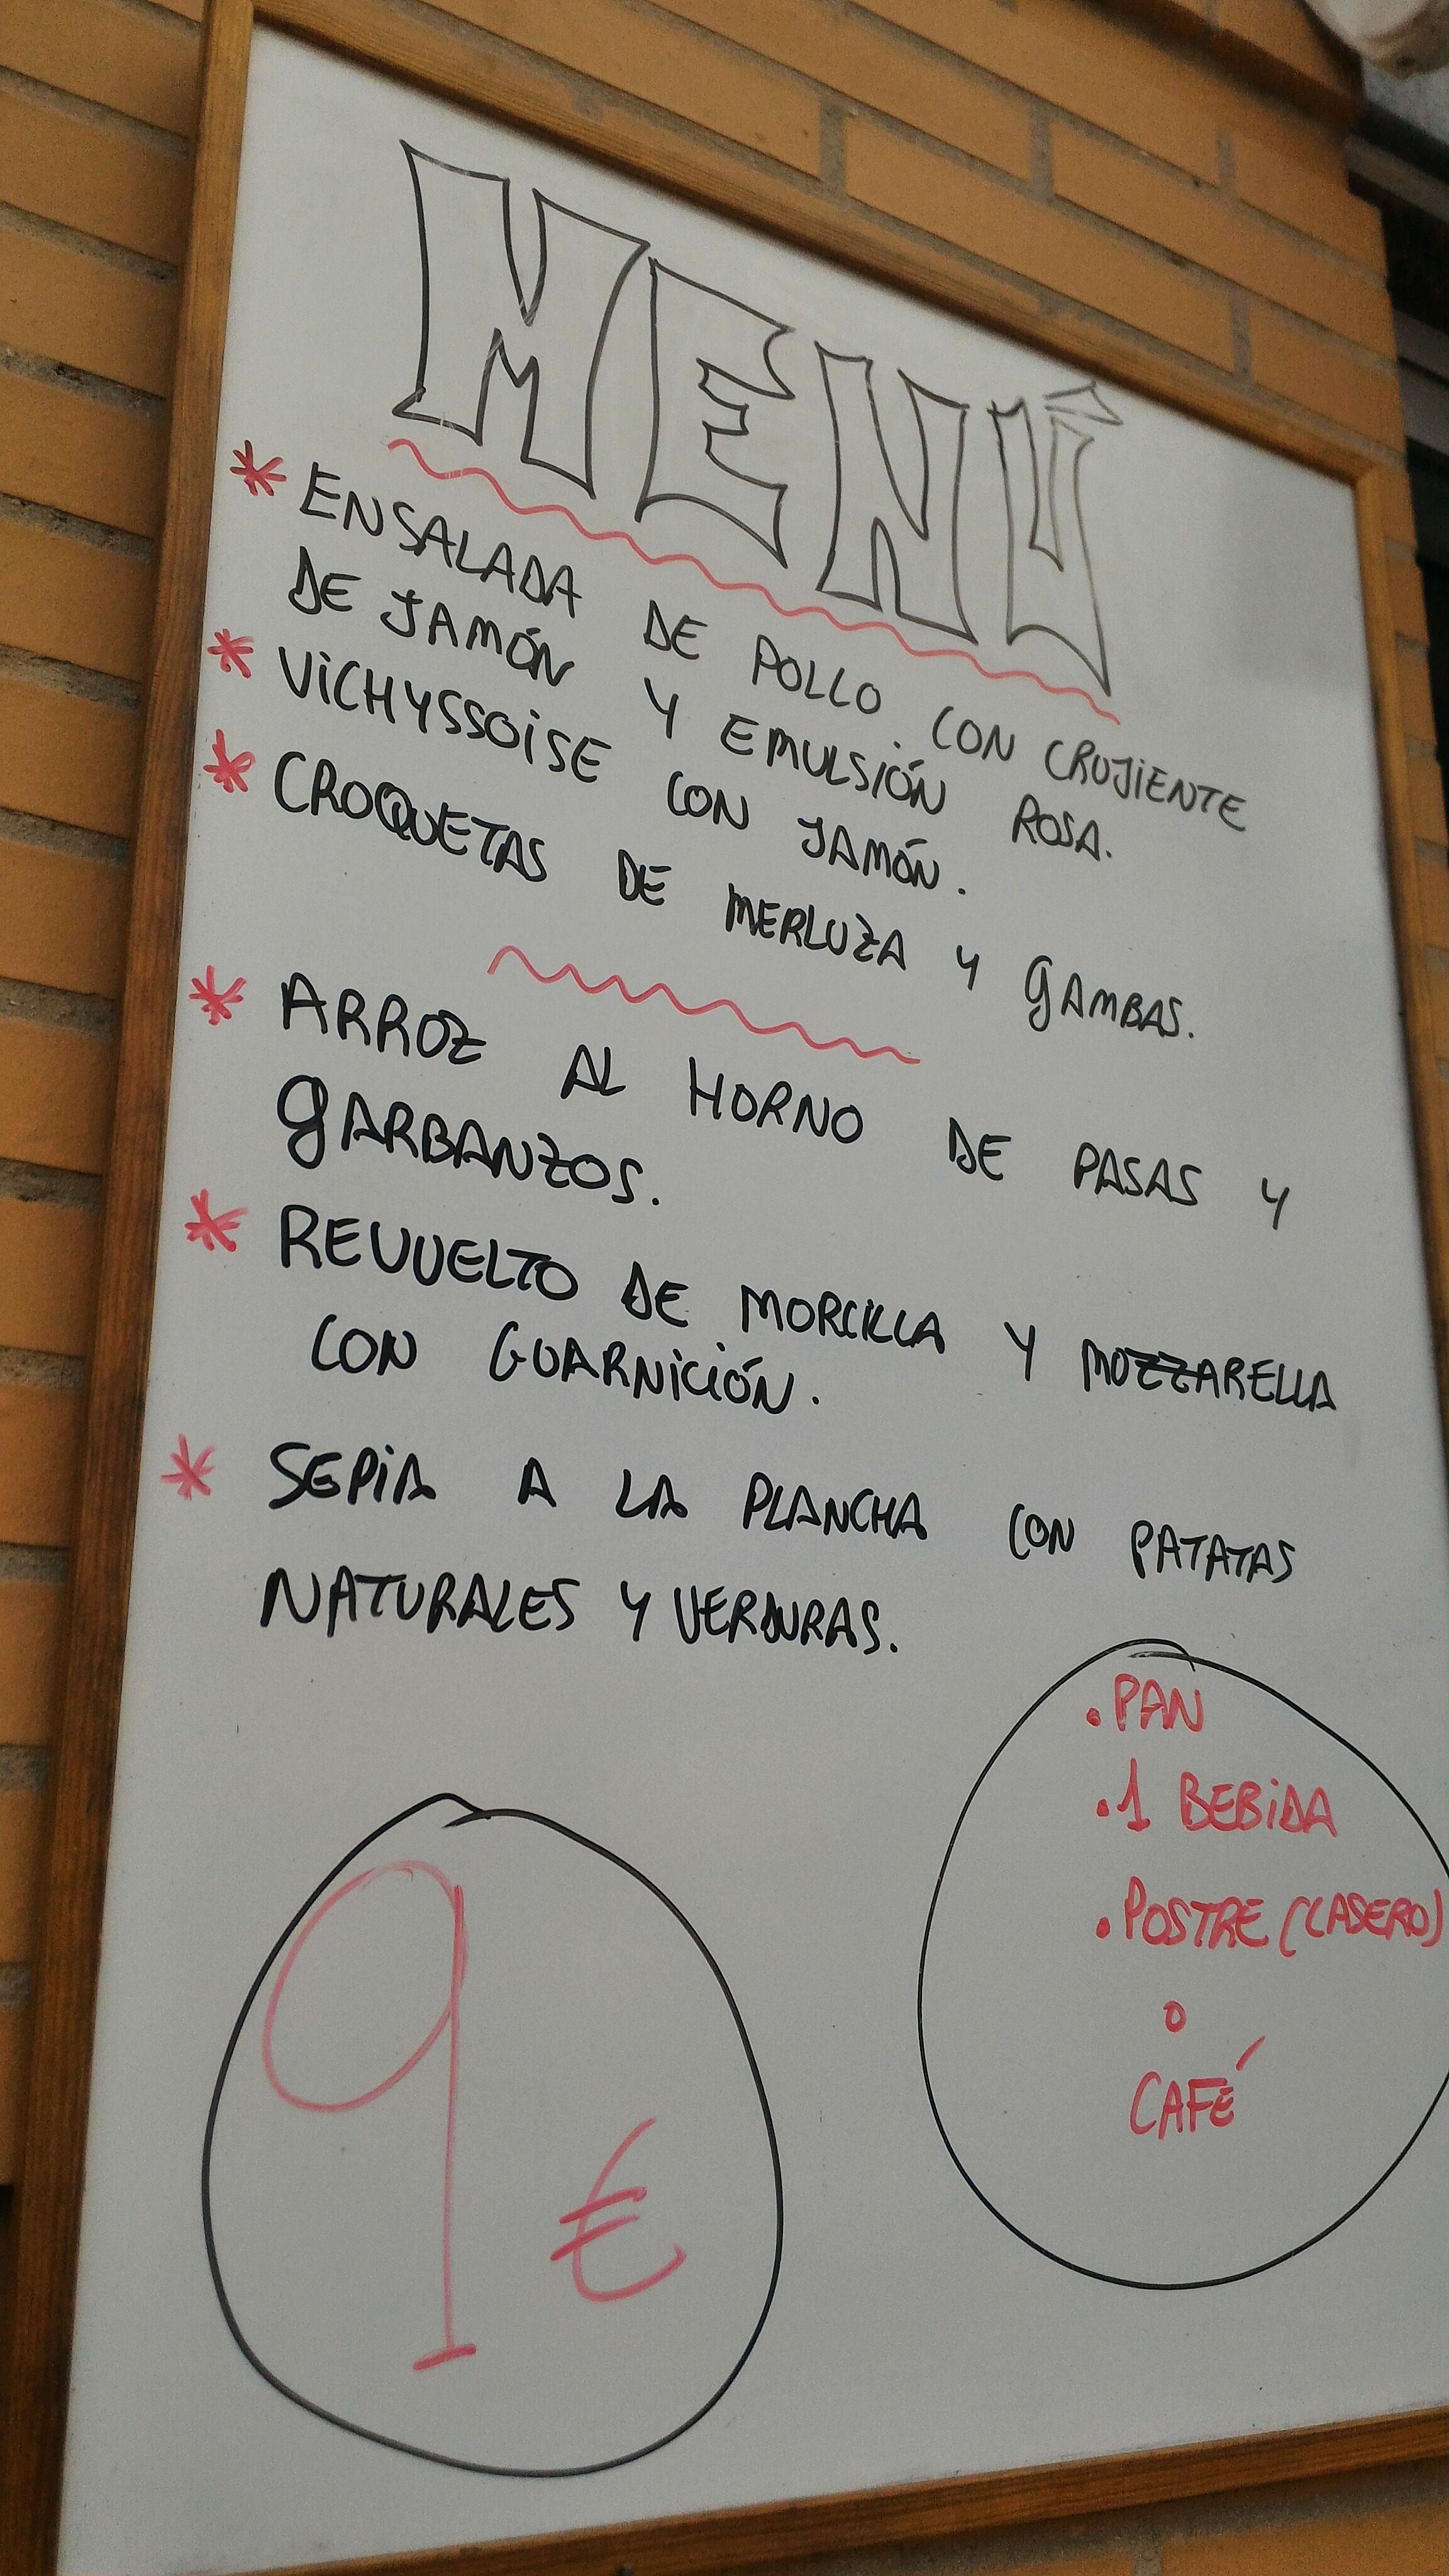 MENÚ
* ENSALADA DE POLLO CON CRUJIENTE
DE JAMÓN Y EMULSIÓN ROSA.
* VICHYSSOISE CON JAMÓN.
* CROQUETAS DE MERLUZA Y GAMBAS.
* ARROZ AL HORNO DE PASAS Y
GARBANZOS.
* REVUELTO DE MORCILLA Y MOZZARELLA
CON GUARNICIÓN.
* SEPIA A LA PLANCHA CON PATATAS
NATURALES Y VERDURAS.
. PAN
. 1 BEBIDA
. POSTRE (CASERO)
O
CAFÉ
9 €